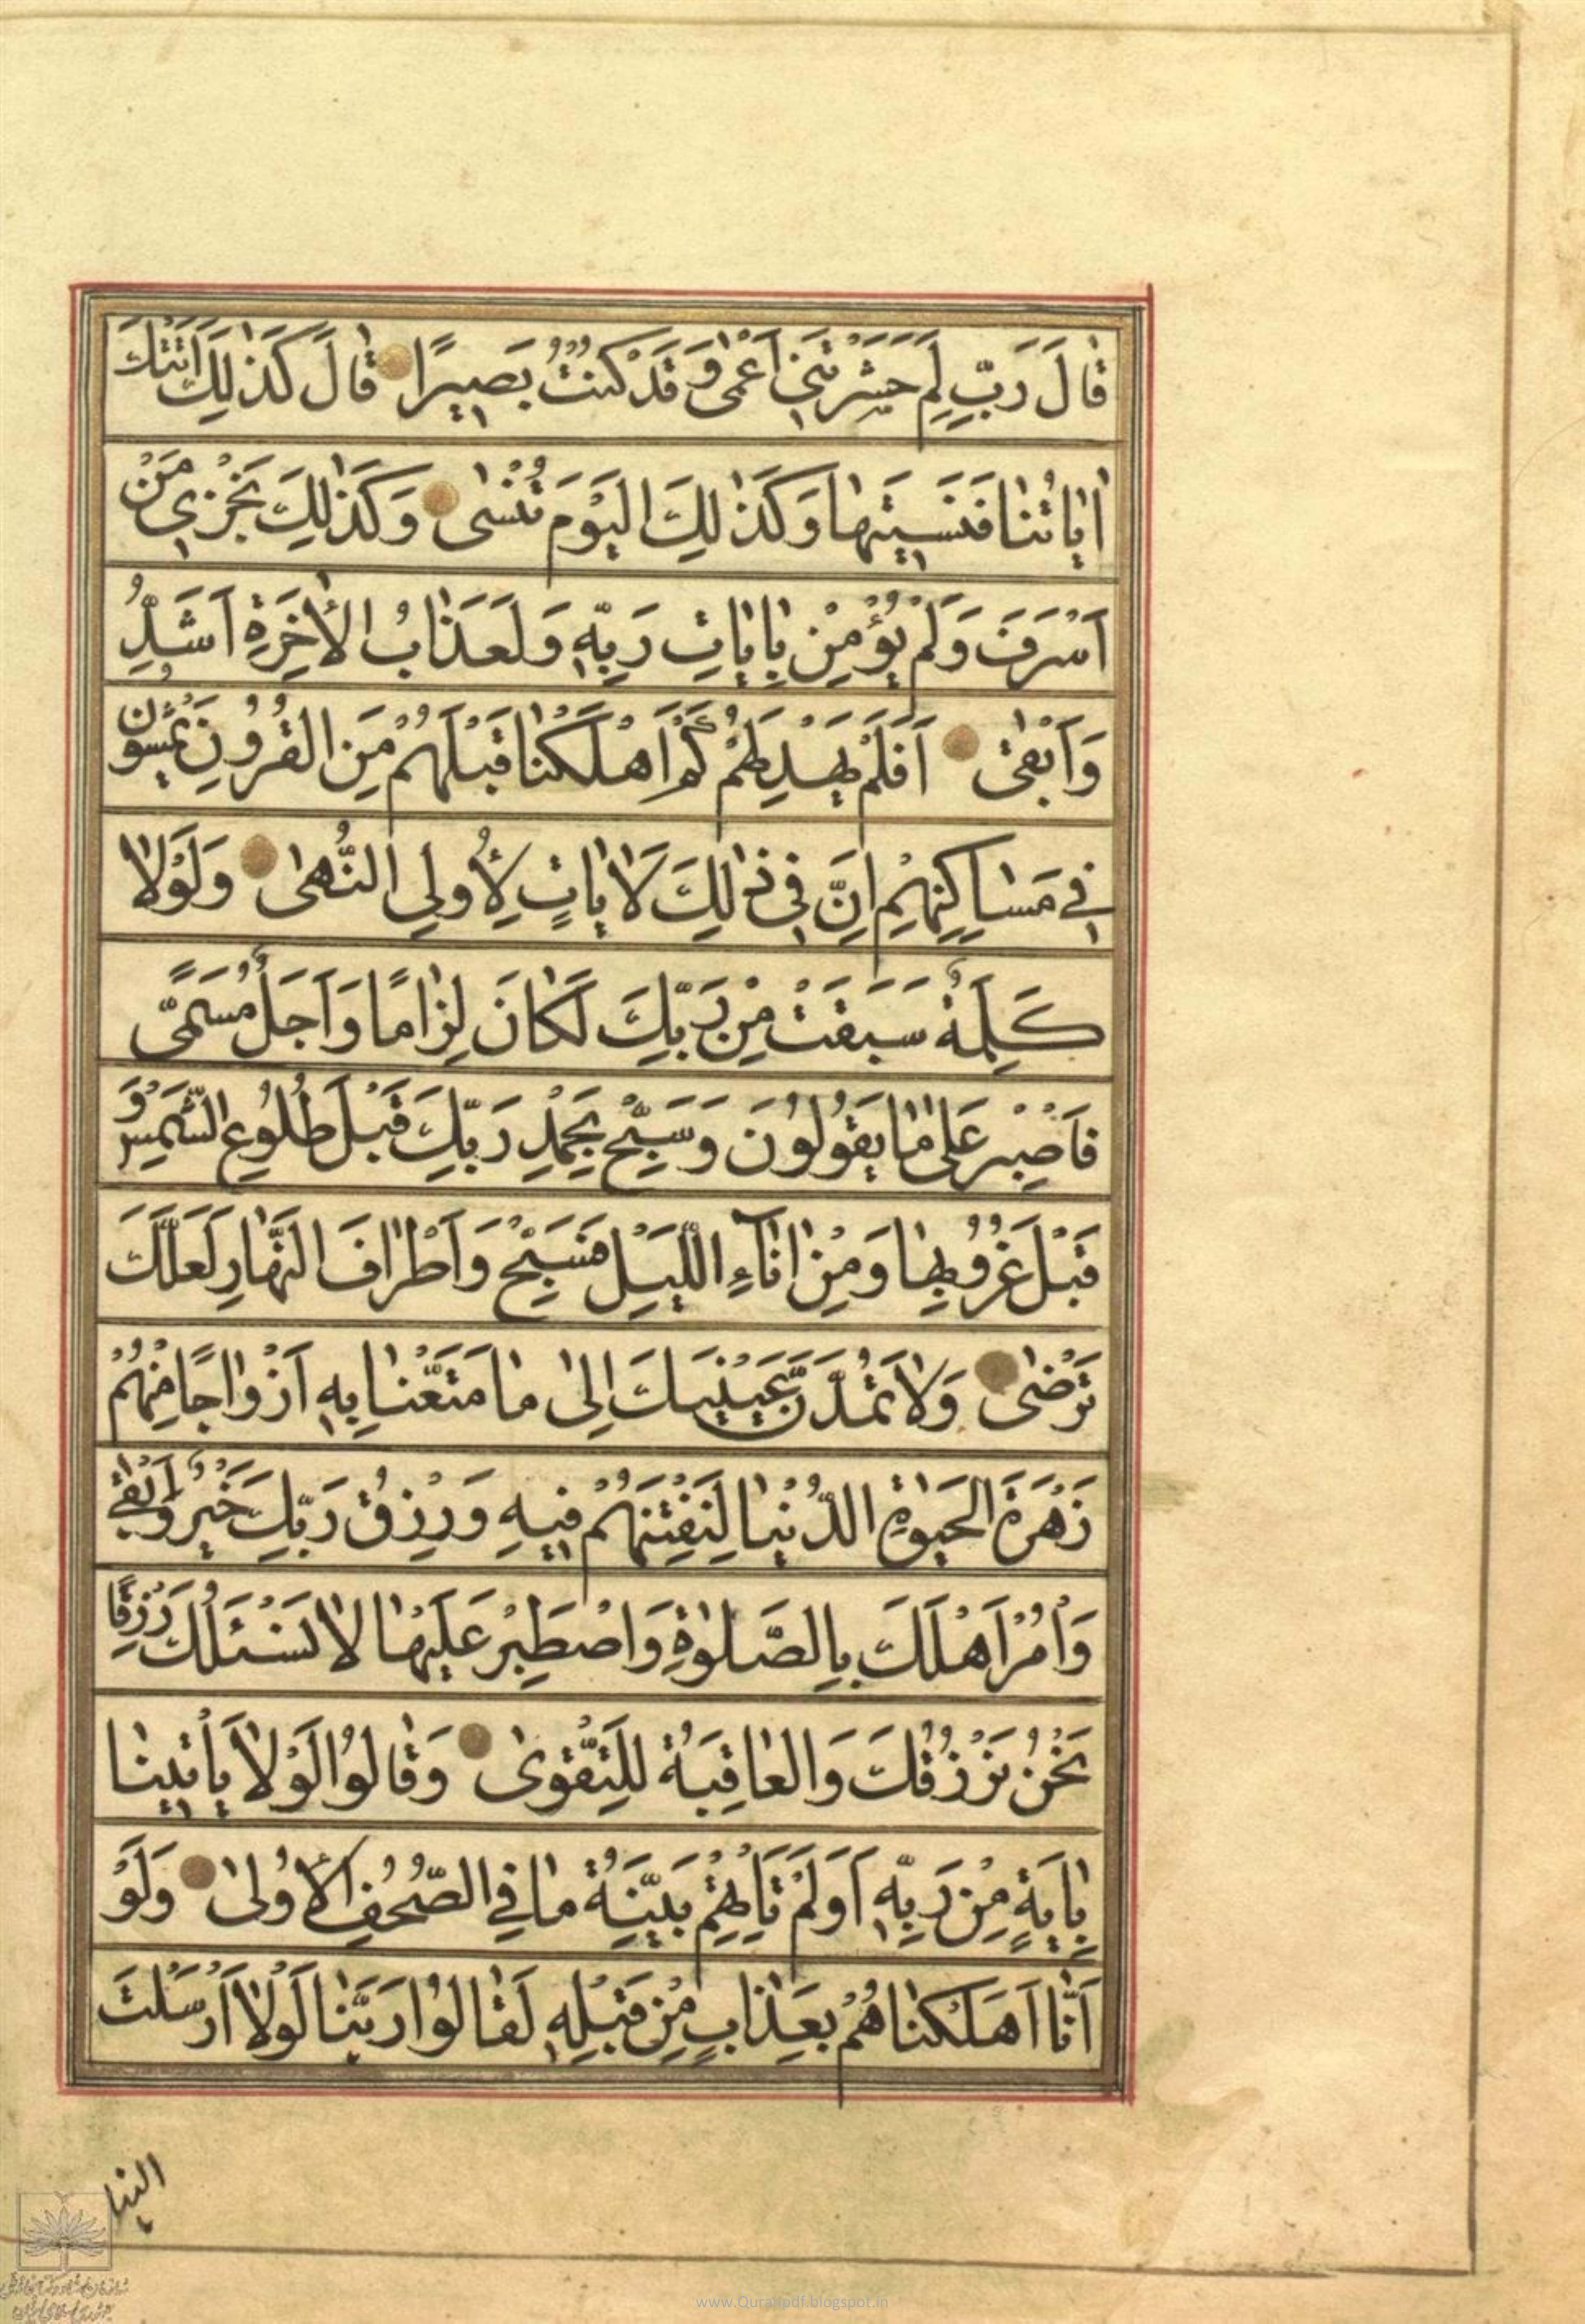 قَالَ رَبِّ لِمَ حَشَرْتَنِي أَعْمٰى وَقَدْ كُنْتُ بَصِيرًا قَالَ كَذٰلِكَ اَتَتْكَ
اٰيَاتُنَا فَنَسِيتَهَا وَكَذٰلِكَ الْيَوْمَ تُنْسٰى وَكَذٰلِكَ نَجْزِي مَنْ
اَسْرَفَ وَلَمْ يُؤْمِنْ بِاٰيَاتِ رَبِّهٖ وَلَعَذَابُ الْاٰخِرَةِ اَشَدُّ
وَاَبْقٰى اَفَلَمْ يَهْدِ لَهُمْ كَمْ اَهْلَكْنَا قَبْلَهُمْ مِنَ الْقُرُونِ يَمْشُونَ
فِي مَسَاكِنِهِمْ اِنَّ فِي ذٰلِكَ لَاٰيَاتٍ لِاُولِي النُّهٰى وَلَوْلَا
كَلِمَةٌ سَبَقَتْ مِنْ رَبِّكَ لَكَانَ لِزَامًا وَاَجَلٌ مُسَمًّى
فَاصْبِرْ عَلٰى مَا يَقُولُونَ وَسَبِّحْ بِحَمْدِ رَبِّكَ قَبْلَ طُلُوعِ الشَّمْسِ وَ
قَبْلَ غُرُوبِهَا وَمِنْ اٰنَاءِ اللَّيْلِ فَسَبِّحْ وَاَطْرَافَ النَّهَارِ لَعَلَّكَ
تَرْضٰى وَلَا تَمُدَّنَّ عَيْنَيْكَ اِلٰى مَا مَتَّعْنَا بِهٖ اَزْوَاجًا مِنْهُمْ
زَهْرَةَ الْحَيٰوةِ الدُّنْيَا لِنَفْتِنَهُمْ فِيهِ وَرِزْقُ رَبِّكَ خَيْرٌ وَاَبْقٰى
وَأْمُرْ اَهْلَكَ بِالصَّلٰوةِ وَاصْطَبِرْ عَلَيْهَا لَا نَسْئَلُكَ رِزْقًا
نَحْنُ نَرْزُقُكَ وَالْعَاقِبَةُ لِلتَّقْوٰى وَقَالُوا لَوْلَا يَأْتِينَا
بِاٰيَةٍ مِنْ رَبِّهٖ اَوَلَمْ تَأْتِهِمْ بَيِّنَةُ مَا فِي الصُّحُفِ الْاُولٰى وَلَوْ
اَنَّا اَهْلَكْنَاهُمْ بِعَذَابٍ مِنْ قَبْلِهٖ لَقَالُوا رَبَّنَا لَوْلَا اَرْسَلْتَ
الينا
www.Quranpdf.blogspot.in